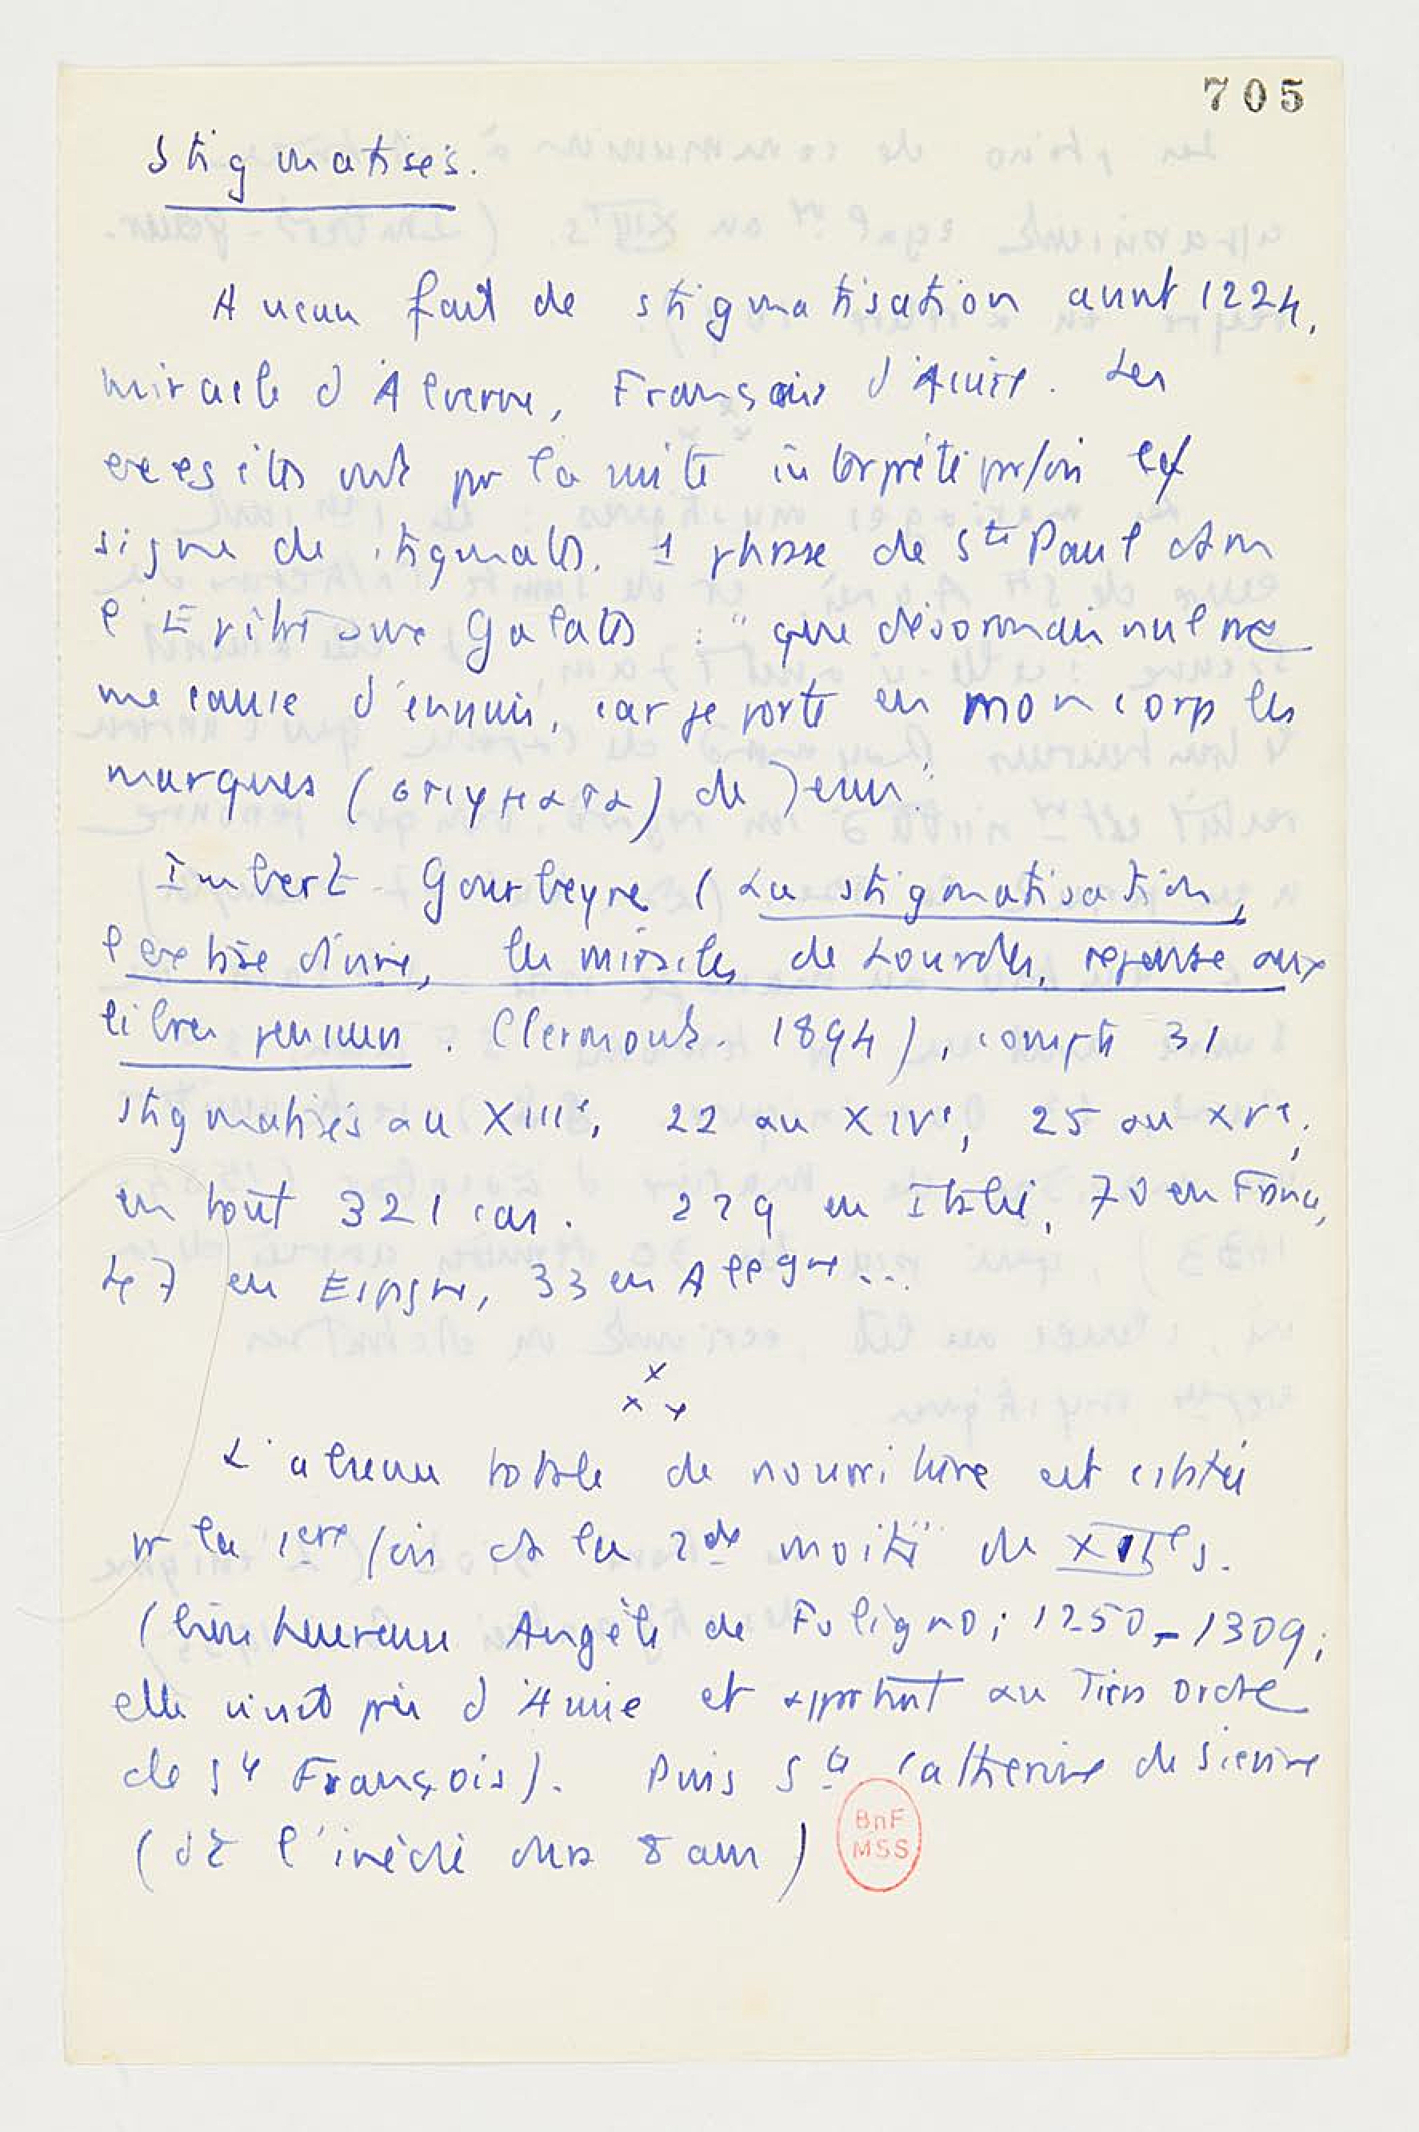 705
Stigmatisés.
Aucun fait de stigmatisation avant 1224,
miracle d'Alverne, François d'Assise. Les
exegètes ont par la suite interprété
signe de stigmates. 1 phrase de St Paul dans
l'Epitre aux Galates : "que désormais nul ne
me cause d'ennuis, car je porte en mon corps les
marques (στιγματα) de Jesus."
Imbert-Gourbeyre (La stigmatisation,
l'extase divine, les miracles de Lourdes, reponse aux
libres penseurs. Clermont. 1894), compte 31
stigmatisés au XIIIe, 22 au XIVe, 25 au XVe;
en tout 321 cas. 229 en Italie, 70 en France,
47 en Espgne, 33 en Allgne...
x
x x
L'absence totale de nourriture est
pr la 1ere fois ds la 2de moitié du XIIIe s.
(bienheureuse Angèle de Foligno; 1250-1309;
elle vivait près d'Assise et appartient au Tiers ordre
de St François). Puis Ste Catherine de Sienne
(ds l'inédie dura 8 ans)
BnF
MSS